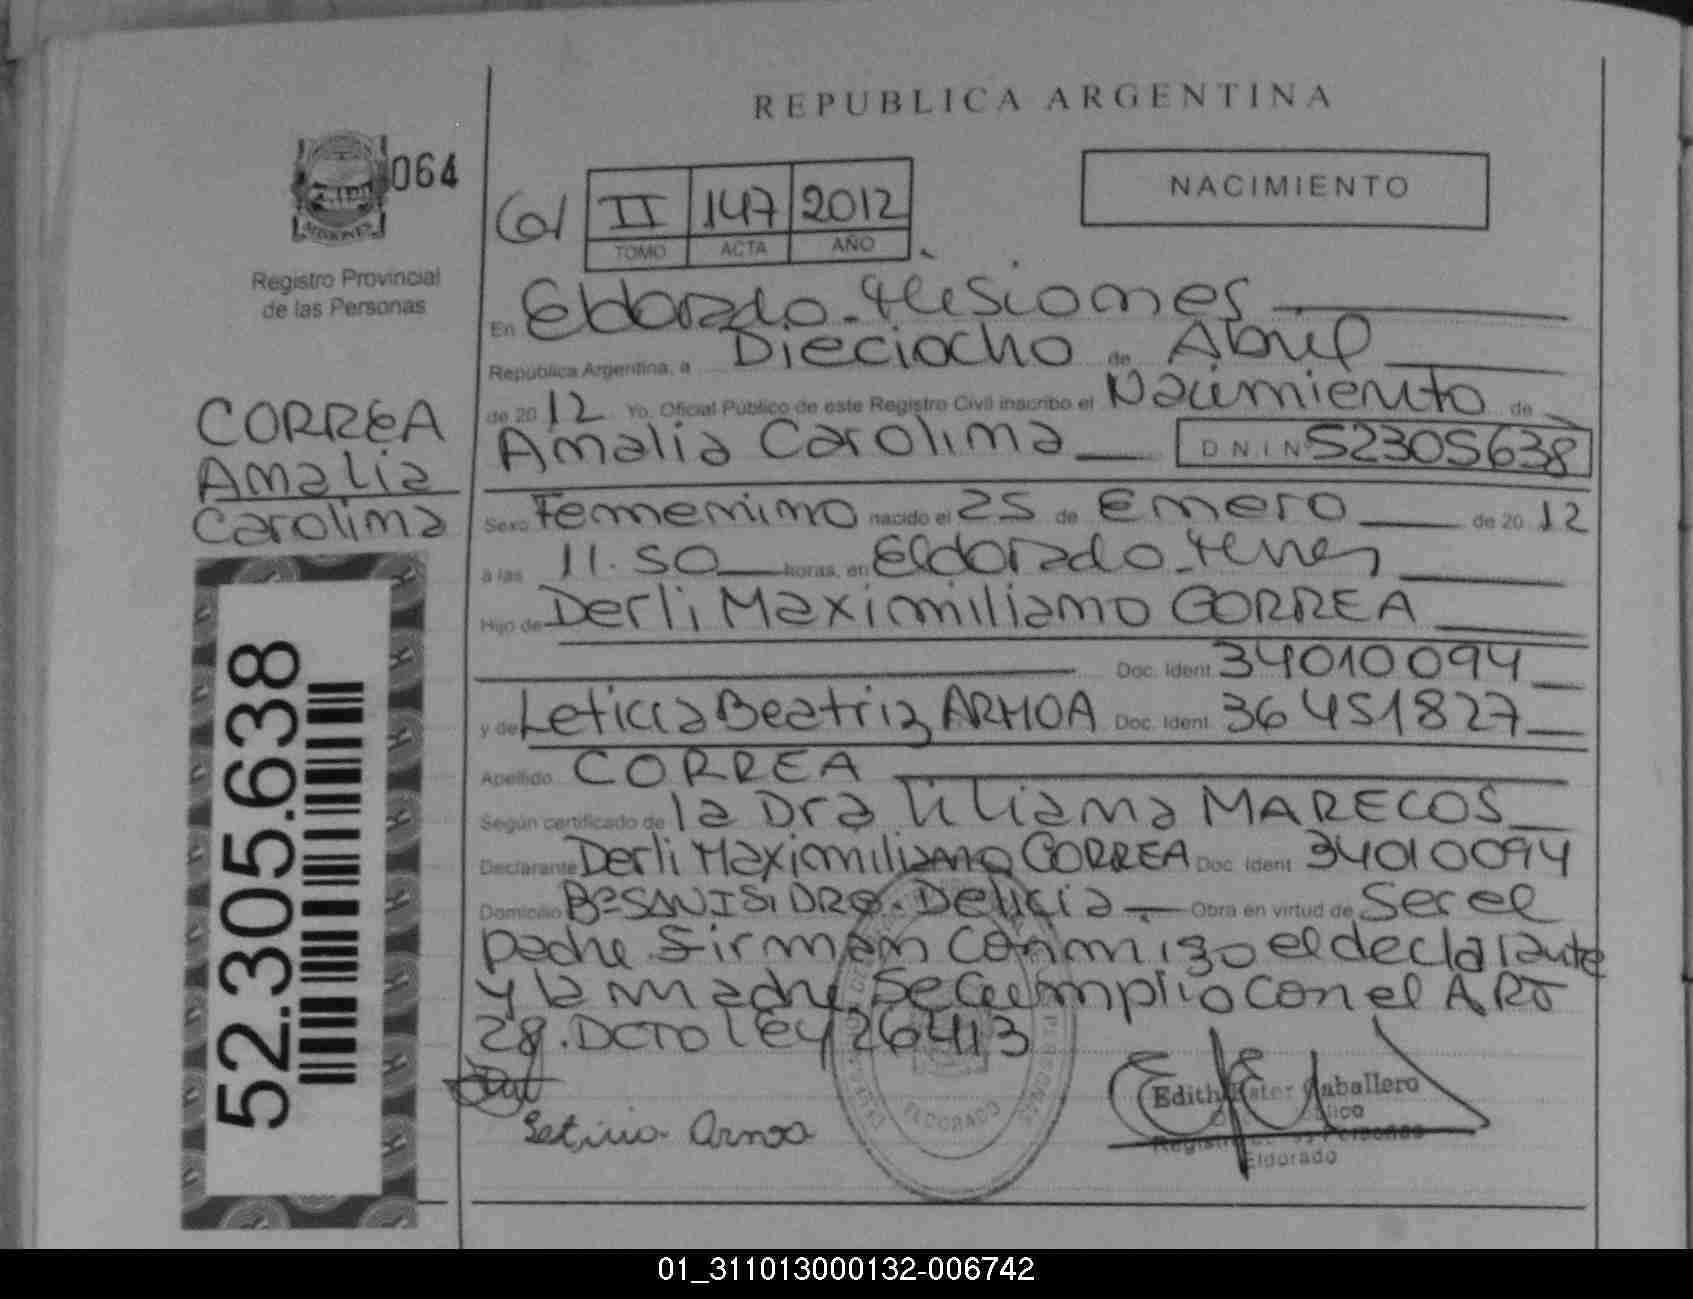 REPUBLICA ARGENTINA
064
MISIONES
Registro Provincial
de las Personas
II 147 2012
TOMO ACTA AÑO
NACIMIENTO
CORREA
Amalia
Carolina
52.305.638
En Eldorado - Misiones
República Argentina, a Dieciocho de Abril
de 2012 Yo, Oficial Público de este Registro Civil inscribo el Nacimiento de
Amalia Carolina D.N.I.N 52305638
Sexo Femenino nacido el 25 de Enero de 2012
a las 11.50 horas, en Eldorado
Hijo de Derli Maximiliano CORREA
Doc. Ident. 34010094
y de Leticia Beatriz ARMOA Doc. Ident. 36451827
Apellido CORREA
Según certificado de la Dra Liliana MARECOS
Declarante Derli Maximiliano CORREA Doc. Ident. 34010094
Domicilio Bº SAN ISIDRO. Delicia Obra en virtud de Ser el
padre. Firman conmigo el declarante
y la madre. Se cumplio con el ART
28. DCTO Ley 26413
Leticia Armoa
ELDORADO
Edith Ester Caballero
Eldorado
01_311013000132-006742